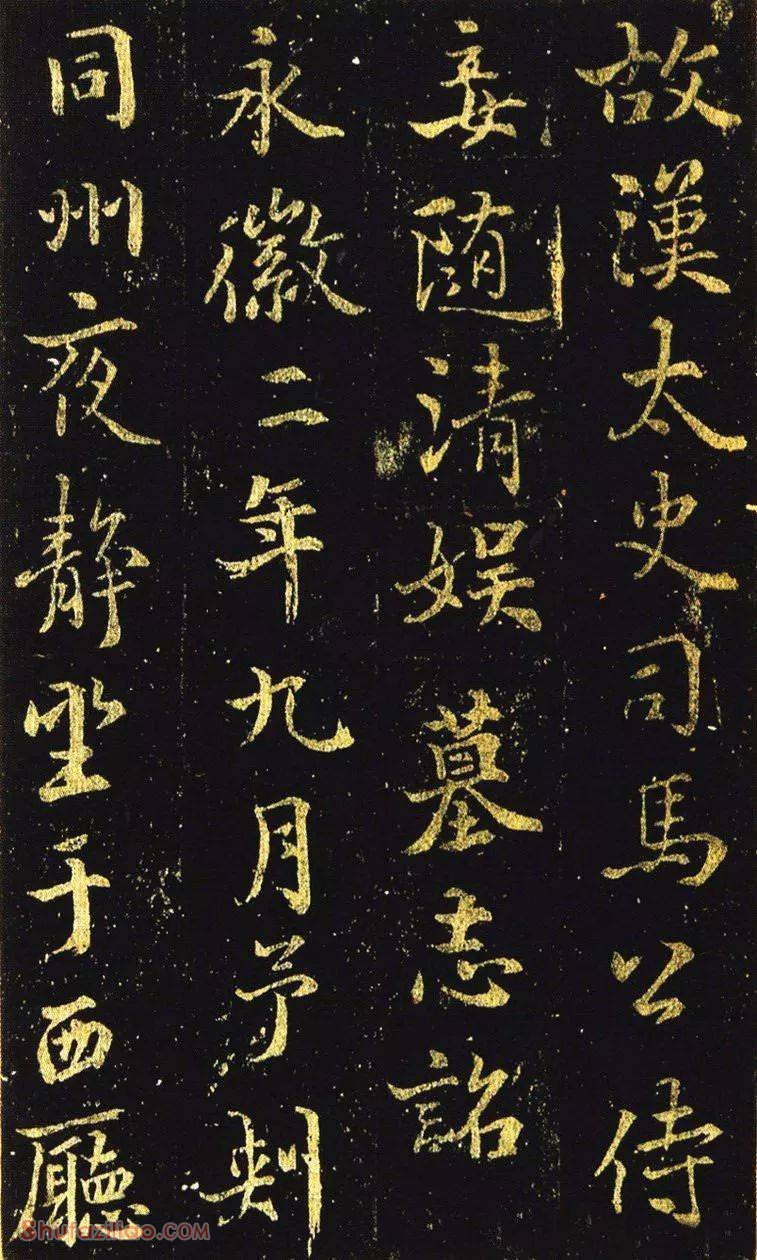 故漢太史司馬公侍
妾随清娱墓志銘
永徽二年九月予刺
同州夜静坐于西廳
Shufaziliao.COM